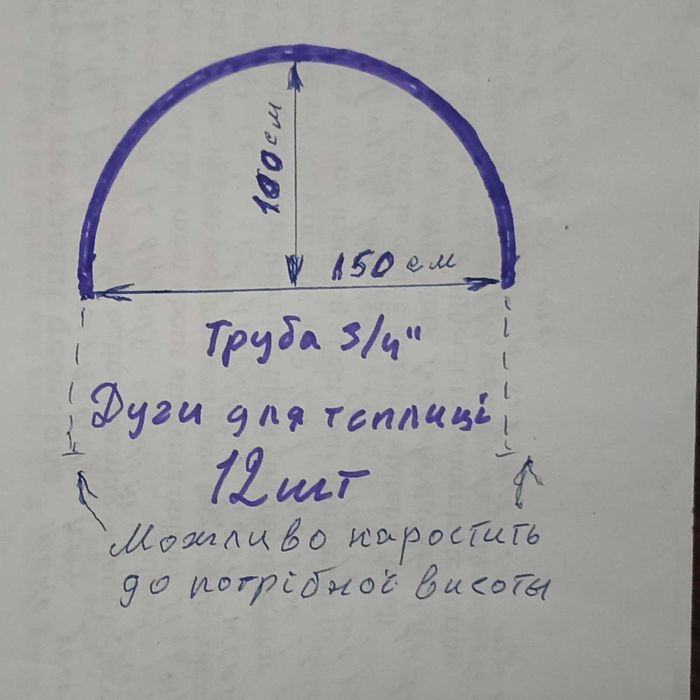 100 см
150 см
Труба 3/4"
Дуги для теплиці
12 шт
Можливо наростить
до потрібної висоты